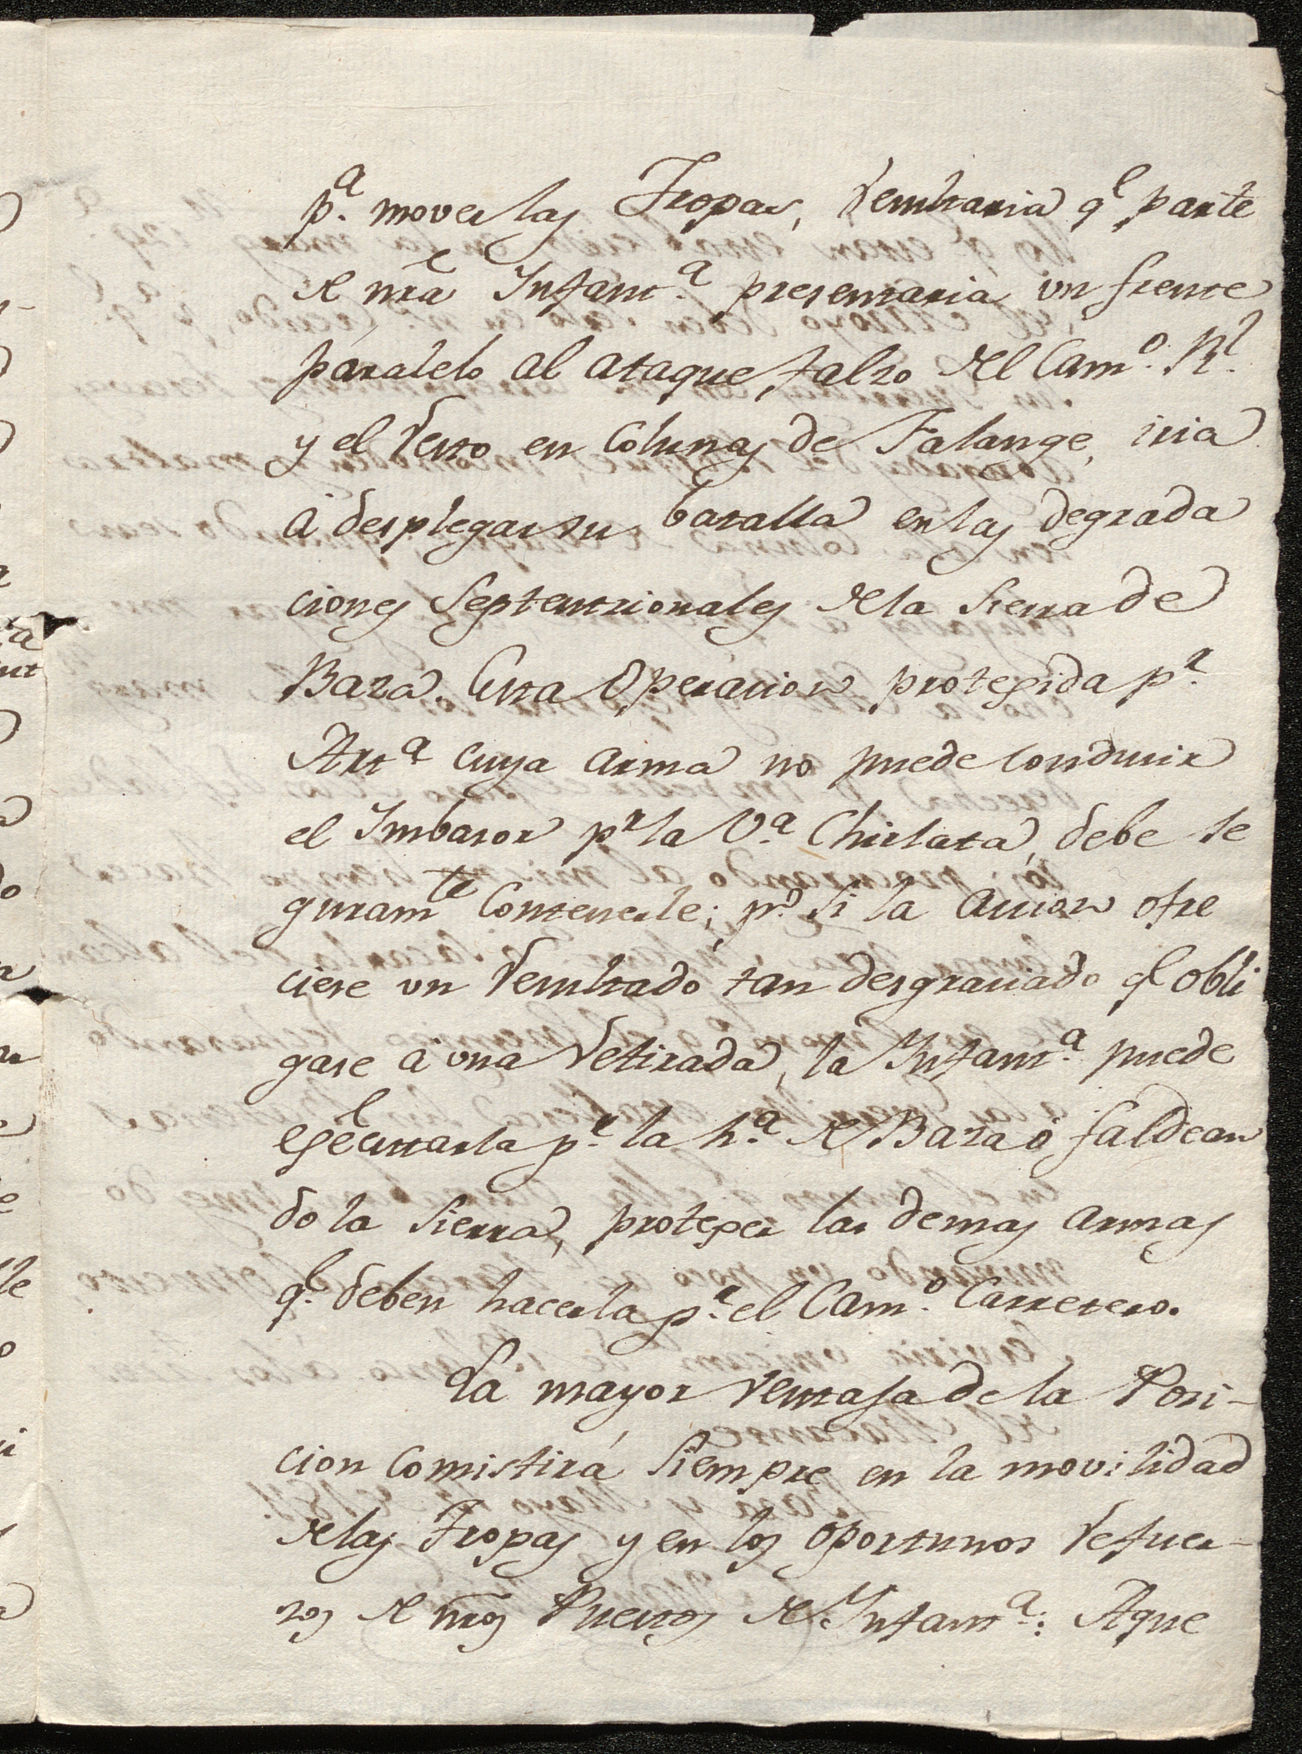 p.ª mover las Tropas, resultaria q.e parte
de nra Infant.ª presentaria un frente
paralelo al ataque falso del Cam.º R.l
y el resto en Colunas de Falange, iria
á desplegar su batalla en las degrada
ciones Septentrionales de la Sierra de
Baza. Esta Operacion protegida p.r
Art.ª cuya arma no puede conducir
el Imbasor p.r la V.ª Chirlata, debe se
guram.te Contenerle; p.o si la accion ofre
ciese un resultado tan desgraciado q.e obli
gase á una retirada, la Infant.ª puede
egecutarla p.r la h.ª de Baza ó faldean
do la Sierra, proteger las demas armas
q.e deben hacerla p.r el Cam.º Carretero.
La mayor ventaja de la Posi-
cion comistirá siempre en la movilidad
de las Tropas y en los oportunos refuer-
zos de nros Puestos de Infant.ª: Aque